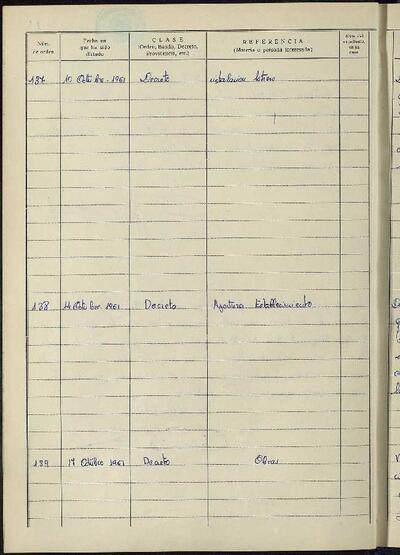 Núm. de orden
Fecha en que ha sido dictado
CLASE
(Orden, Bando, Decreto, Providencia, etc.)
REFERENCIA
(Materia o persona interesada)
137 10 Octubre-1961 Decreto
138 14 Octubre 1961 Decreto Apertura Establecimiento
139 17 Octubre 1961 Decreto Obras